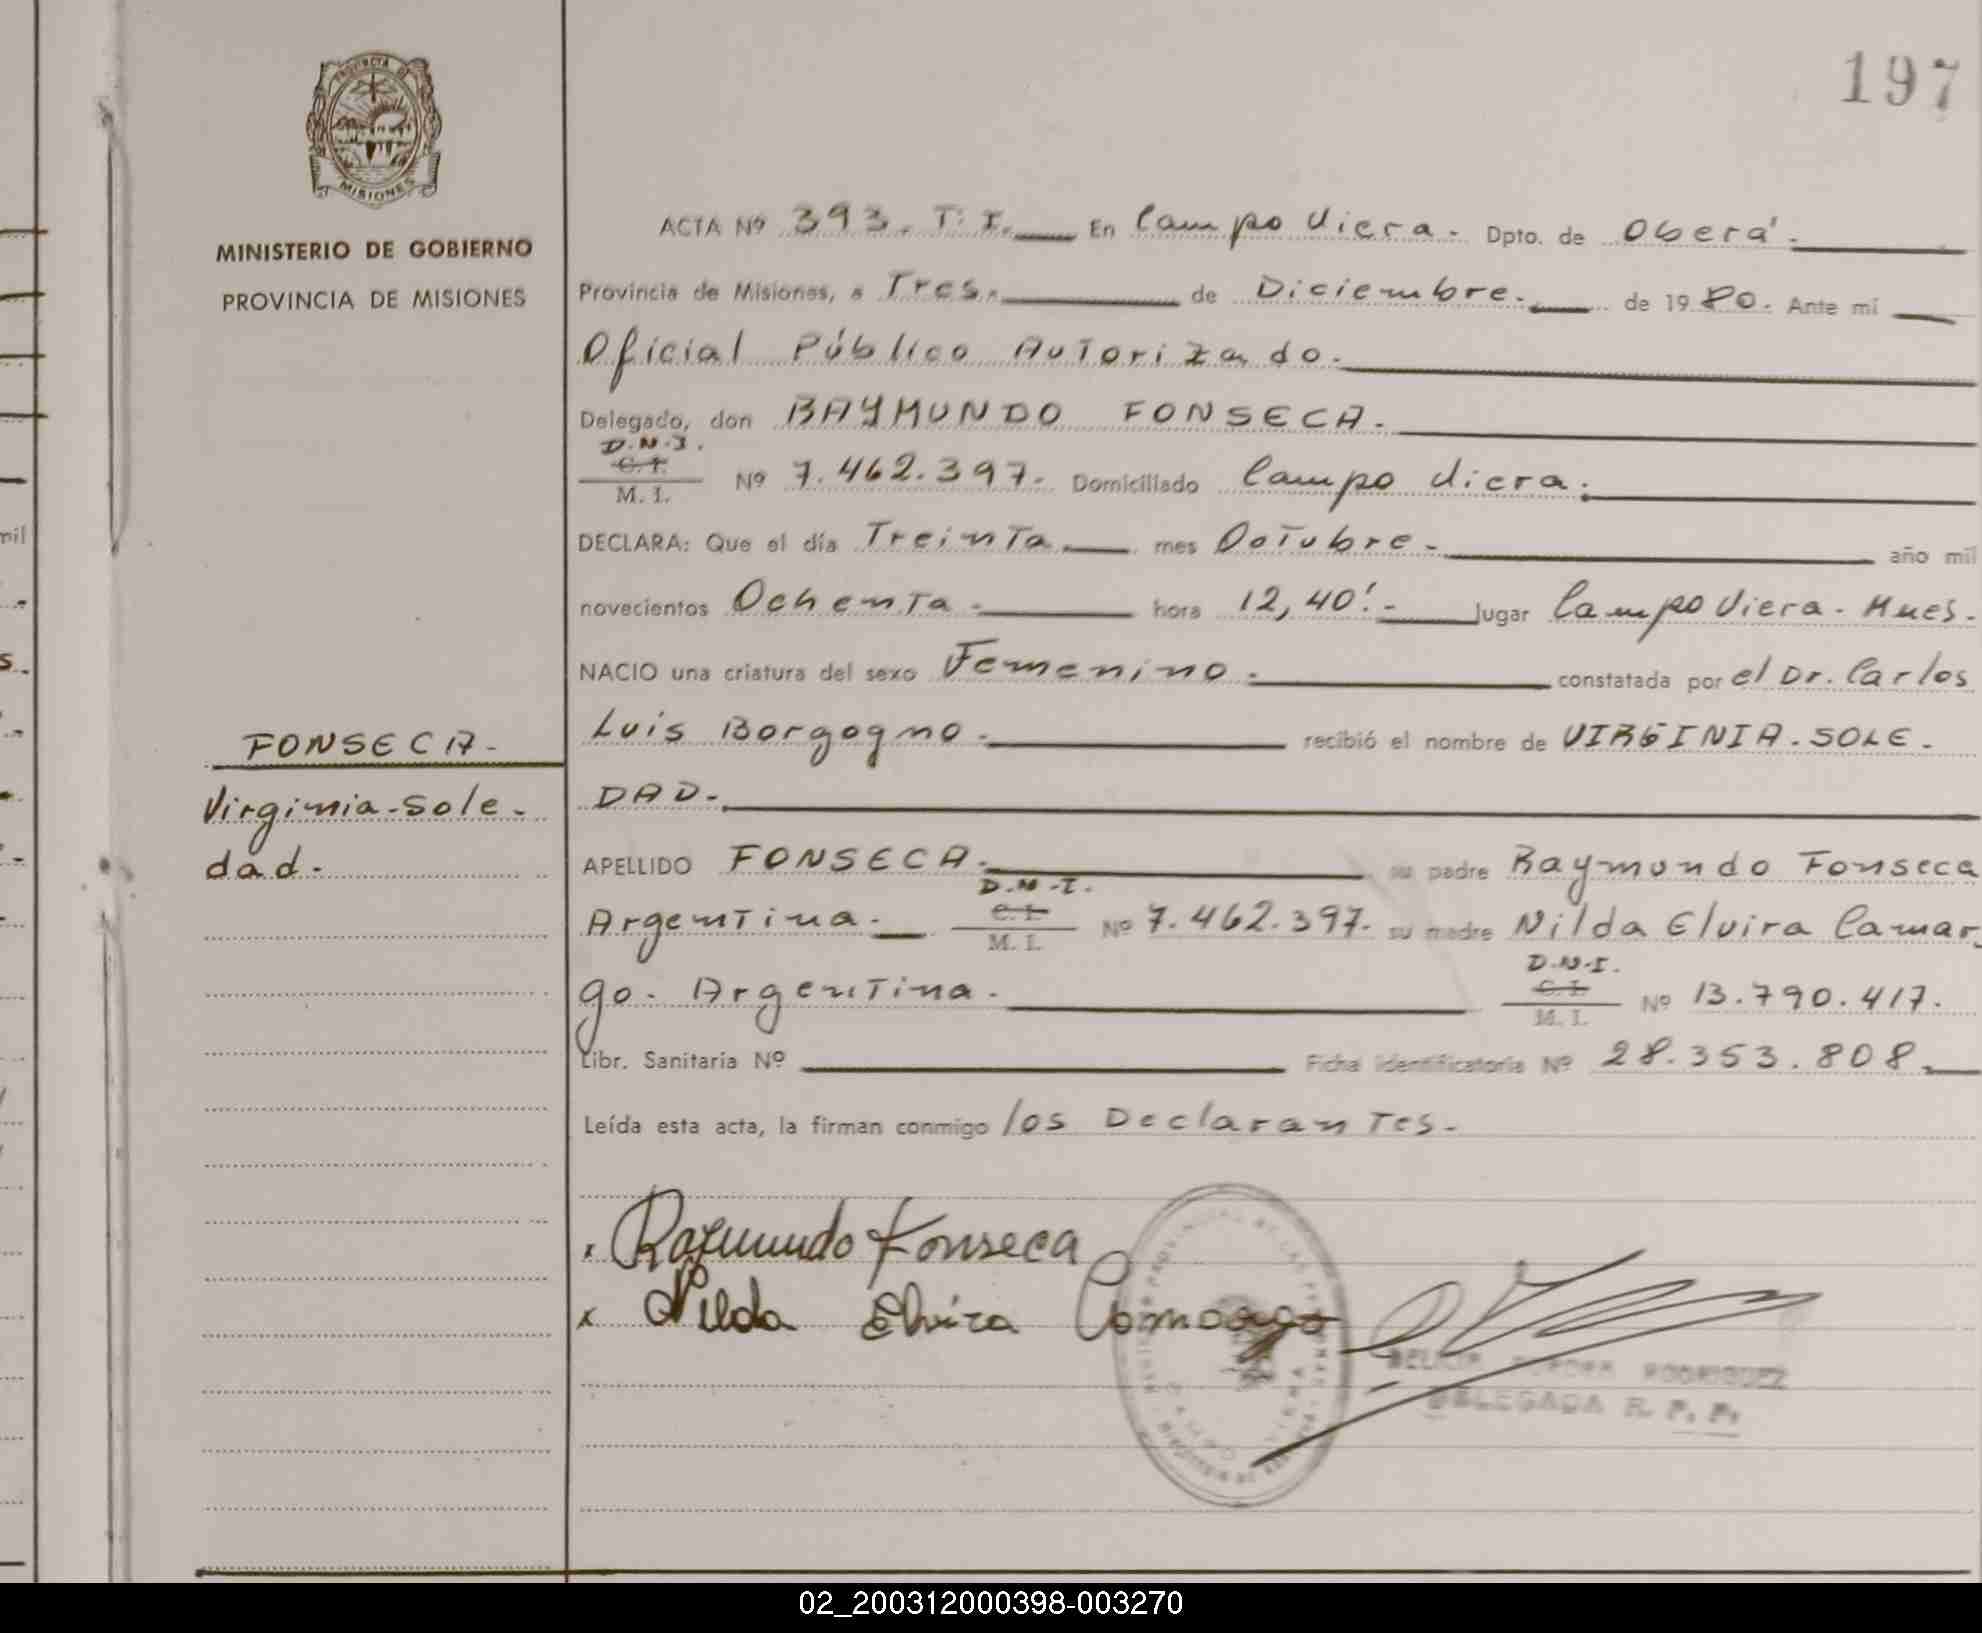 197
PROVINCIA DE
MISIONES
MINISTERIO DE GOBIERNO
PROVINCIA DE MISIONES
FONSECA-
Virginia-Sole-
dad-
ACTA Nº 393. T: I. En Campo Viera. Dpto. de Oberá.
Provincia de Misiones, a Tres. de Diciembre. de 1980. Ante mi
Oficial Público Autorizado.
Delegado, don RAYMUNDO FONSECA.
D.N.I.
C. I.
M. I. Nº 7.462.397. Domiciliado Campo Viera.
DECLARA: Que el día Treinta mes Octubre. año mil
novecientos Ochenta. hora 12,40'. lugar Campo Viera. Mnes.
NACIO una criatura del sexo Femenino. constatada por el Dr. Carlos
Luis Borgogno. recibió el nombre de VIRGINIA. SOLE-
DAD.
APELLIDO FONSECA. su padre Raymundo Fonseca
D.N.I.
C. I.
Argentina. M. I. Nº 7.462.397. su madre Nilda Elvira Camar-
D.N.I.
C. I.
go. Argentina. M. I. Nº 13.790.417.
Libr. Sanitaria Nº Ficha identificatoria Nº 28.353.808.
Leída esta acta, la firman conmigo los Declarantes.
x Raymundo Fonseca
x Nilda Elvira Camargo
RODRIGUEZ
DELEGADA R. P. P.
mil
02_200312000398-003270